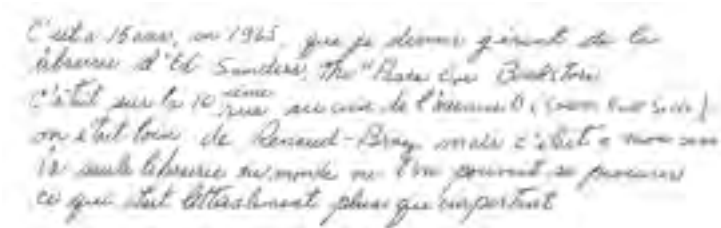 C'est à 15 ans, en 1965, que je devins gérant de la
librairie d'Ed Sanders, The "Peace Eye Bookstore
C'était sur la 10 ième rue au coin de l'avenue B (Lower East Side)
on était loin de Renaud-Bray mais c'était à mon sens
la seule librairie au monde où l'on pouvait se procurer
ce qui était littéralement plus qu'important